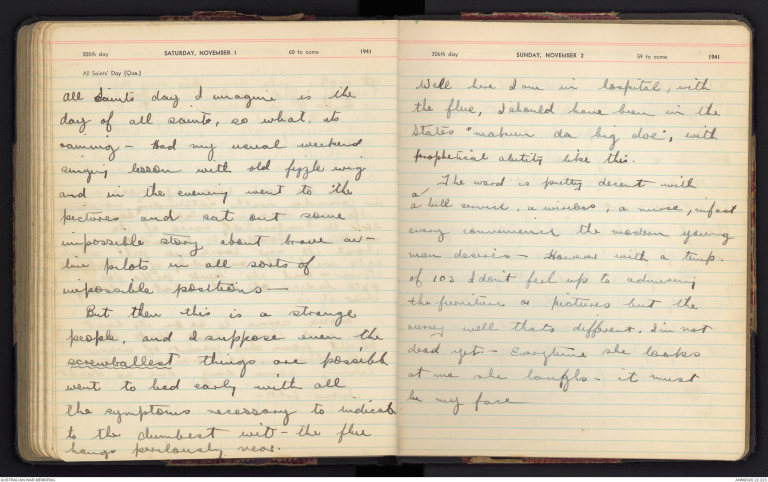 305th day SATURDAY, NOVEMBER 1 60 to come 1941
All Saints' Day (Que.)
all Saints day I imagine is the
day of all saints, so what. its
raining - Had my usual weekend
singing lesson with old fizzle wig
and in the evening went to the
pictures and sat out some
impossible story about brave air-
line pilots in all sorts of
impossible positions -
But then this is a strange
people, and I suppose even the
screwballest things are possible
went to bed early with all
the symptoms necessary to indicate
to the dumbest wit - the flue
hangs perilously near.
306th day SUNDAY, NOVEMBER 2 59 to come 1941
Well here I am in hospital, with
the flue, I should have been in the
States "makin da big doe", with
prophetical ability like this.
The ward is pretty decent with
a
a bell service, a wireless, a nurse, infact
every convenience the modern young
man desires - However with a temp.
of 103 I dont feel up to admireing
the furniture or pictures but the
nurse, well thats different. I'm not
dead yet - Everytime she looks
at me she laughs - it must
be my face
AUSTRALIAN WAR MEMORIAL